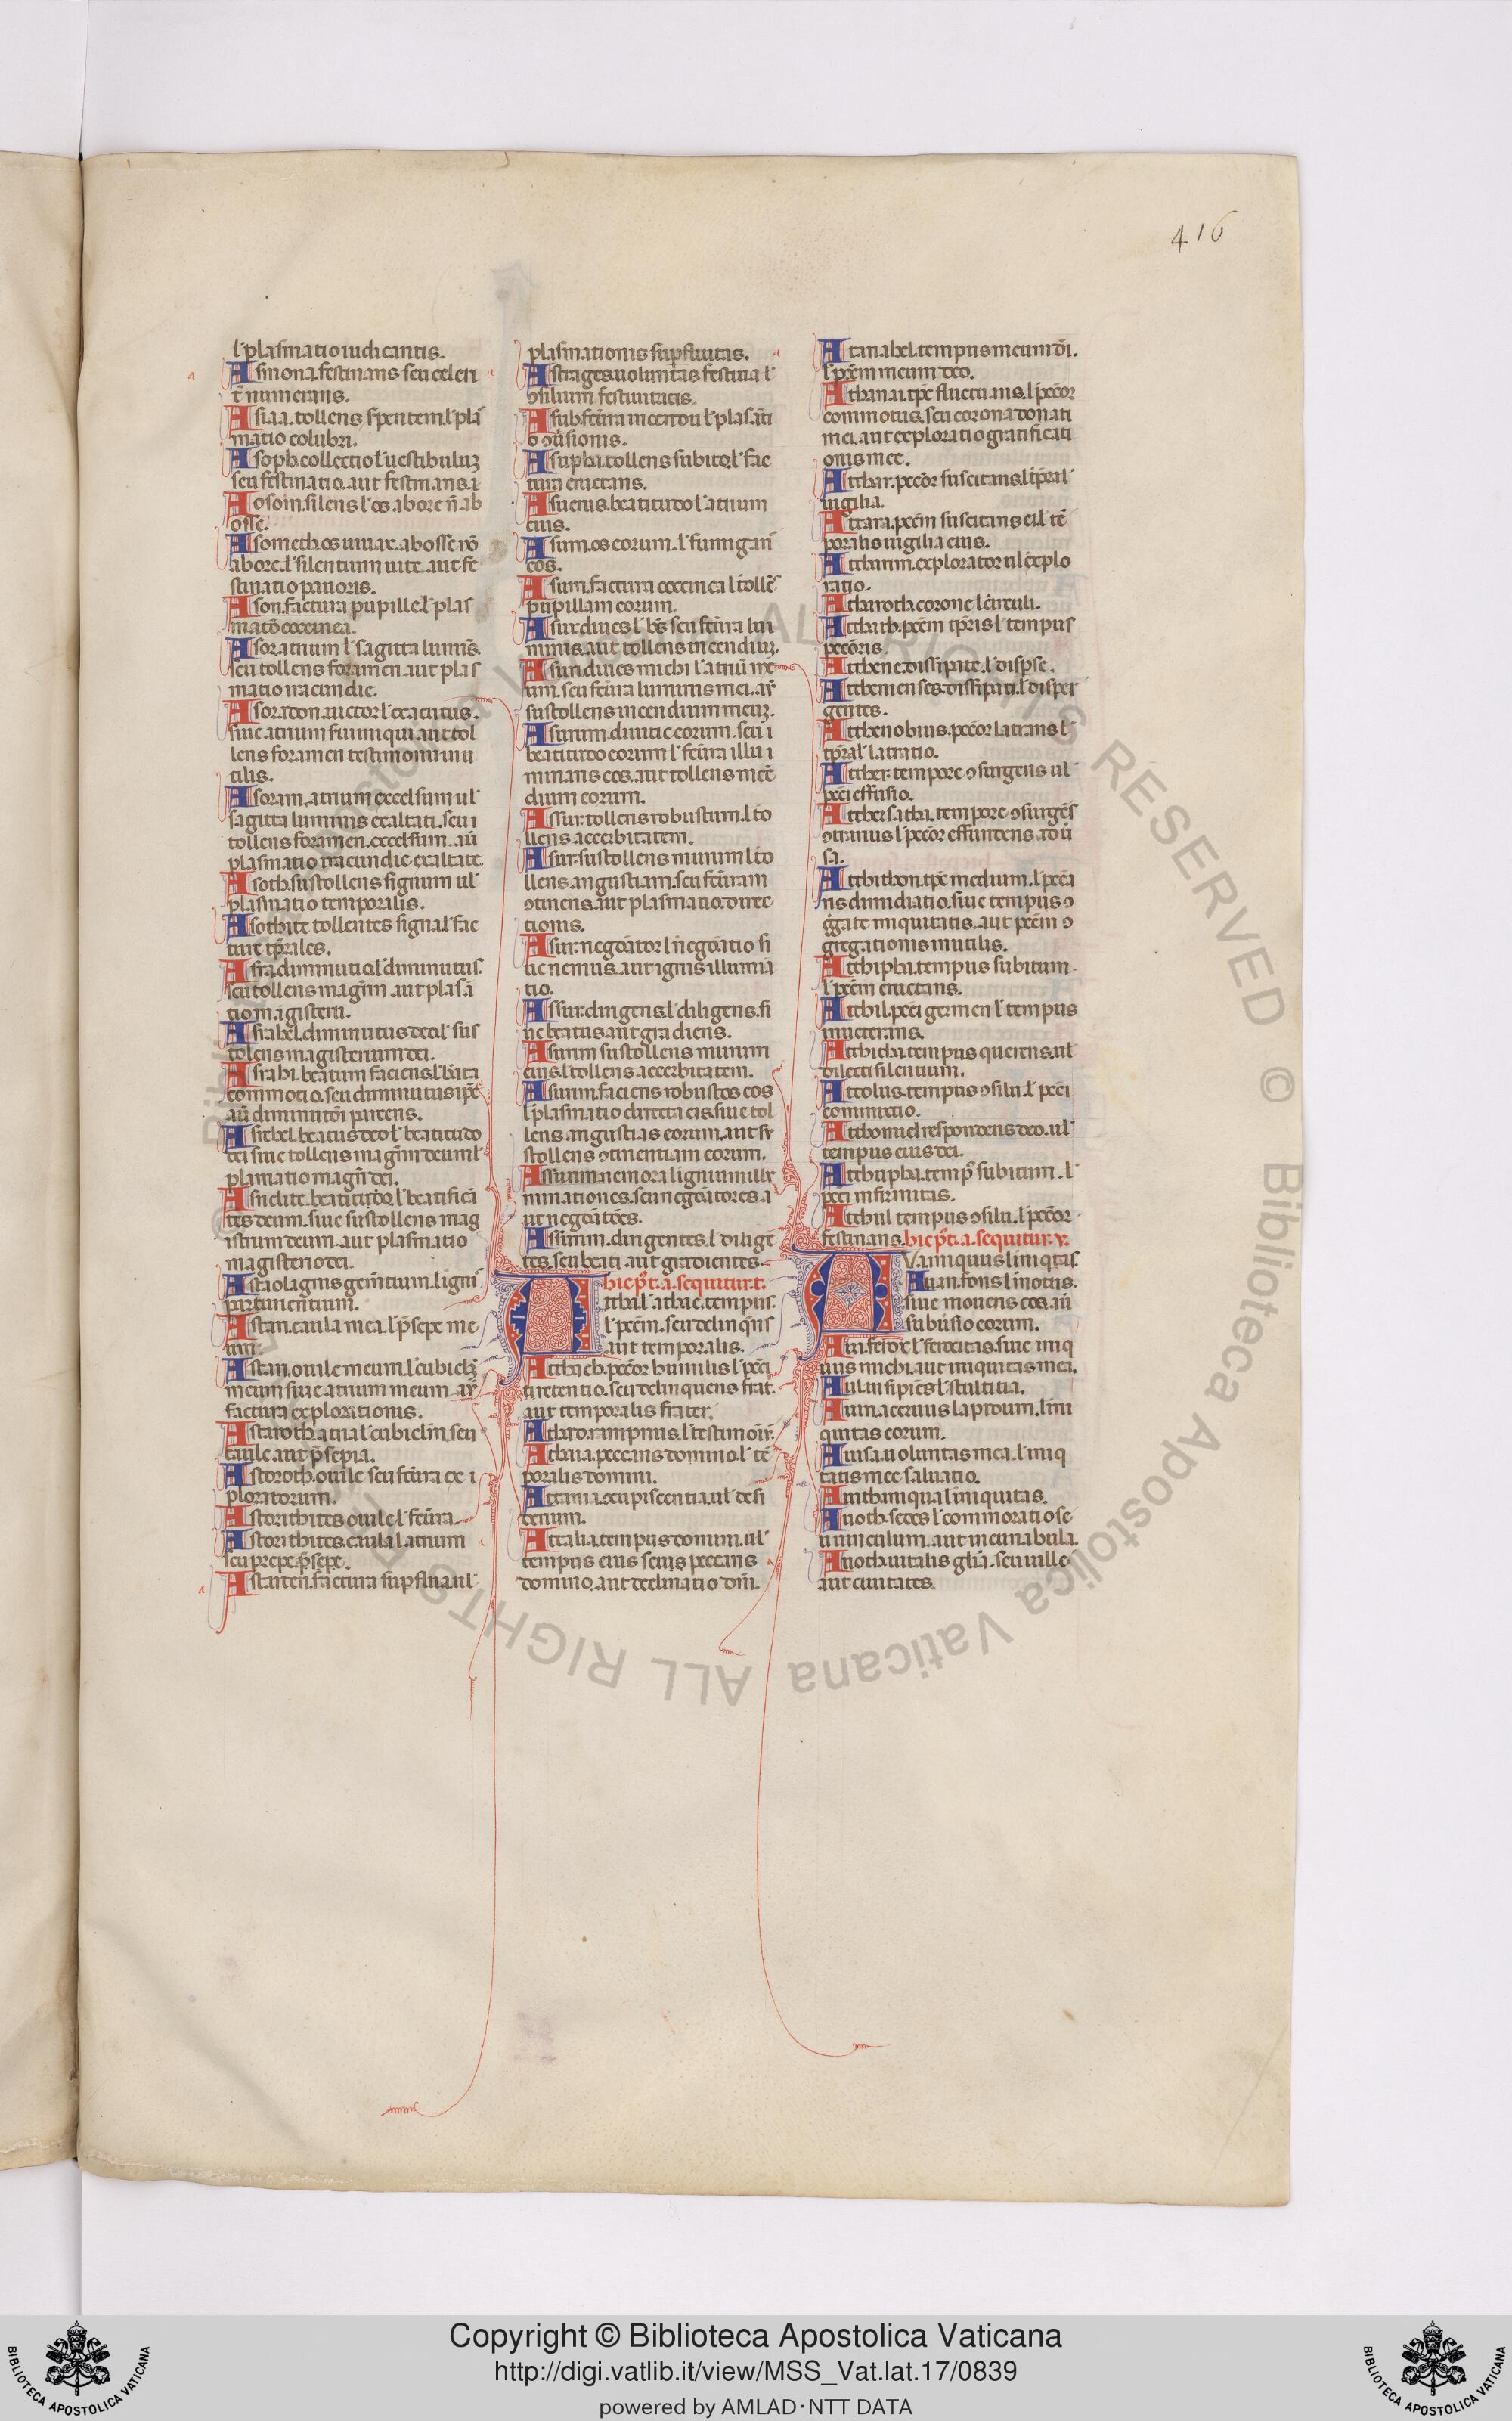 416
l' plasmatio iudicantis.
Asmona. festinans seu celeri
t̄ numerans.
Asiaa. tollens s̄pentem. l' pla
matio colubri.
Asoph collectio l' uestibuluꝫ
seu festinatio. aut festinans. i
Aosom. silens l' os abore ñ ab
osse.
Asometh os uiuax. ab osse nō
abore. l' silentium uite. aut fe
stinatio pauoris.
Ason. factura pupille. l' plas
matō coccinea.
Asor atrium l' sagitta lumīs.
seu tollens foramen. aut plas
matio iracundie.
Asordon. uictor l' exacutus.
siue atrium fuim qui aut tol
lens foramen testimonii inu
tilis.
Asoram. atrium excelsum ul'
sagitta luminis exaltati. seu i
tollens foramen. excelsum. aū
plasmatio iracundie exaltate.
Asoth. sustollens signum ul'
plasmatio temporalis.
Asothite tollentes signa. l' fac
ture tp̄rales.
Asra. diminutio. l' diminutus.
seu tollens magr̄m. aut plasā
tio magisterii.
Asrahel. diminutus deo. l' sus
tolens magisterium dei.
Asrahi. beatum faciens. l' bāta
commotio. seu diminutus ip̄e
aū diminutōi parcens.
Asrehel. beatus deo l' beatitudo
dei siue tollens magr̄m deum l'
plamatio magr̄i dei.
Asrielite. beatitudo. l' beatificā
tes deum. siue sustollens mag
istrum deum. aut plasmatio
magisterio dei.
Astaol. agnis gem̄tium. l' igni'
parturientium.
Astan. caula mea. l' p̄sepe me
um.
Astan. ouile meum. l' cubicl'ꝫ
meum siue atrium meum. aū
factura explorationis.
Astaroth. atria l' cubiclm. seu
caule. aut p̄sepia.
Astoroth. ouile seu fc̄ura ex i
ploratorum.
Astorithites ouile l' fc̄ura.
Astorithites. caula l atrium
seu prepe. p̄sepe.
Astarten. factura supflua. ul'
plasmationis supfluitas.
Astrages uoluntas festiua l'
ↄsilium festiuitatis.
Asub. fc̄ura incerton l' plasāti
o ↄūsionis.
Asupha. tollens subito. l' fac
tura eructans.
Asuerus. beatitudo l' atrium
eius.
Asum. os eorum. l' fumigans
eos.
Asum. factura coccinea l tollēs
pupillam eorum.
Asur. diues l' bt̄s seu fc̄ura lui
minis. aut tollens incendiuꝫ.
Asuri. diues michi l' atriū me
um. seu fc̄ura luminis mei. aū
sustollens incendium meuꝫ.
Asurum. diuitie eorum. seu i
beatitudo eorum l' fc̄ura illu i
minans eos. aut tollens incē
dium eorum.
Assur. tollens robustum. l to
llens acerbitatem.
Asur. sustollens murum l to
llens. angustiam. seu fc̄uram
ↄtinens. aut plasmatio. direc
tionis.
Asur. negōator l negōatio si
ue nemus. aut ignis illumīa
tio.
Assur. dirigens. l' diligens. si
ue beatus. aut gradiens.
Asurim sustollens murum
eius. l tollens acerbitatem.
Asurim. faciens robustos eos
l' plasmatio directa eis. siue tol
lens angustias eorum. aut su
stollens ↄtinentiam eorum.
Assurim. nemora. l ignium illu
minationes. seu negōatores. a
ut negōatōes.
Assurim. dirigentes. l' diligē
tes. seu beati. aut gradientes.
hic pꝰt. a. sequitur. t.
Attha. l' athac. tempus.
l' pcc̄m. seu delinq̄ns
aut temporalis.
Atthach. pccōr humilis l' pecc̄i
ū retentio. seu delinquens frat̄.
aut temporalis frater.
Athad. rampnus. l' testimoīr.
Athaia. peccans domino. l' tē
poralis domini.
Attania. cupiscentia. ul' desi
derium.
Attalia. tempus domini. ul'
tempus eius seu peccans
domino. aut declinatio dn̄i.
Atanabel. tempus meum dn̄i.
l' pcc̄m meum deo.
Athanai. tp̄r fluctuans. l' pccōr
commotus. seu corona donati
mei. aut exploratio gratificati
onis mee.
Atthar. pccōr suscitans. l tp̄ral'
uigilia.
Attara. pcc̄m suscitans ei. l' tē
poralis uigilia eius.
Attharim. explorator ul' explo
ratio.
Atharoth. corone l' circuli.
Attath. pcc̄m tp̄ris l' tempus
peccōris.
Atthene. dissipate. l' dispse.
Attheniensces. dissipati. l' disper
gentes.
Atthenobius. peccōr latrans l'
tp̄ral' latratio.
Atther. tempore ↄsurgens ul'
pcc̄i effusio.
Atthersatha. tempore ↄsurgēs
ↄtrarius l' pccōr effundens adū
sa.
Atthithon. tp̄s medium. l' peccā
ns dimidiatio. siue tempus ↄ
ḡgate iniquitatis. aut pcc̄m ↄ
gregationis inutilis.
Atthipha. tempus subitum.
l' pcc̄m eructans.
Atthil. pcc̄i germen l' tempus
mueterans.
Atthitha. tempus querens. ul'
dilecti silentium.
Attolus. tempus ↄsilii. l' pecc̄i
commixtio.
Atthomiel respondens deo. ul'
tempus eius dei.
Atthupha. temp̄ subitum. l'
pcc̄i infirmitas.
Atthul tempus ↄsilii. l' pccōr
festinans. hic pꝰt. a. sequitur. v.
AVa. iniquus l iniq̄tas
Auan. fons l' motus.
siue mouens eos. aū
subūsio eorum.
Aui. ferox l' ferocitas. siue iniq
uus michi. aut iniquitas mea.
Aul. insipiēs l' stultitia.
Auin. aceruus lapidum. l ini
quitas eorum.
Auisa. uoluntas mea. l' iniq
tatis mee saluatio.
Auith. iniqua l iniquitas.
Auoth. sedes l' commoratio se
uumculum. aut incunabula.
Auoth. uitalis gl'ia. seu uille
aut ciuitates.
Copyright © Biblioteca Apostolica Vaticana
http://digi.vatlib.it/view/MSS_Vat.lat.17/0839
powered by AMLAD·NTT DATA
BIBLIOTECA APOSTOLICA VATICANA
BIBLIOTECA APOSTOLICA VATICANA